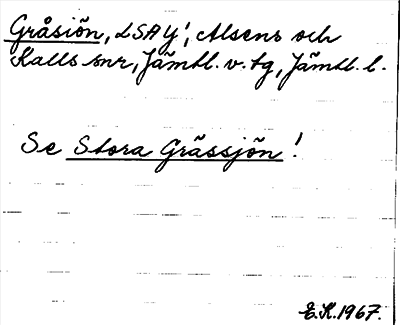 Gråsiön, LSAY!, Alsens och
Kalls snr, Jämtl. v. tg, Jämtl. l.
Se Stora Grässjön!
E.K. 1967.